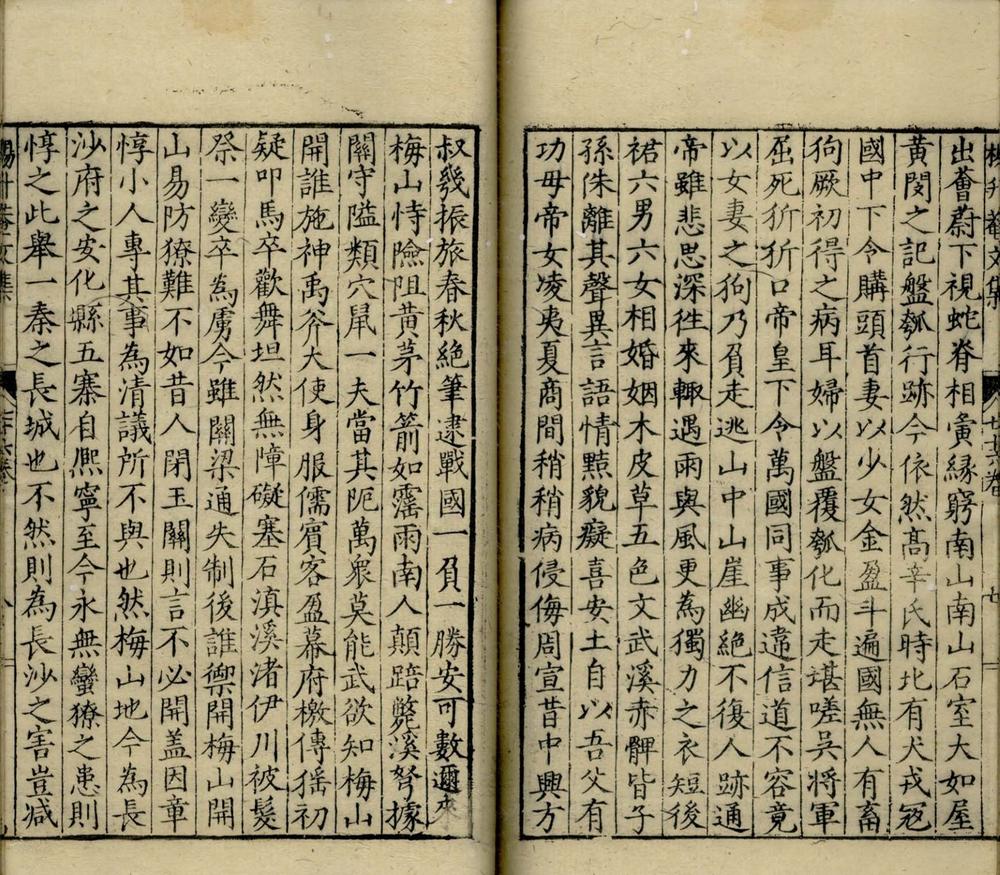 出薈蔚下視蛇脊相夤緣窮南山南山石室大如屋
黃閔之記盤瓠行跡今依然高辛氏時北有犬戎寇
國中下令購頭首妻以少女金盈斗遍國無人有畜
狗厥初得之病耳婦以盤覆瓠化而走堪嗟吳將軍
屈死狾狾口帝皇下令萬國同事成違信道不容竟
以女妻之狗乃負走逃山中山崖幽絶不復人跡通
帝雖悲思深徃來輙遇雨與風更為獨力之衣短後
裙六男六女相婚姻木皮草五色文武溪赤髀皆子
孫侏離其聲異言語情黠貌癡喜安土自以吾父有
功毋帝女凌夷夏商間稍稍病侵侮周宣昔中興方
叔幾振旅春秋絶筆逮戰國一負一勝安可數邇來
梅山恃險阻黃茅竹箭如䨪雨南人顛踣斃溪弩據
關守隘類穴鼠一夫當其阨萬衆莫能武欲知梅山
開誰施神禹斧大使身服儒賓客盈幕府檄傳猺初
疑叩馬卒歡舞坦然無障礙塞石滇溪渚伊川被髮
祭一變卒為虜今雖關梁通失制後誰禦開梅山開
山易防獠難不如昔人閉玉關則言不必開蓋因章
惇小人專其事為清議所不與也然梅山地今為長
沙府之安化縣五寨自熈寧至今永無蠻獠之患則
惇之此舉一秦之長城也不然則為長沙之害豈减